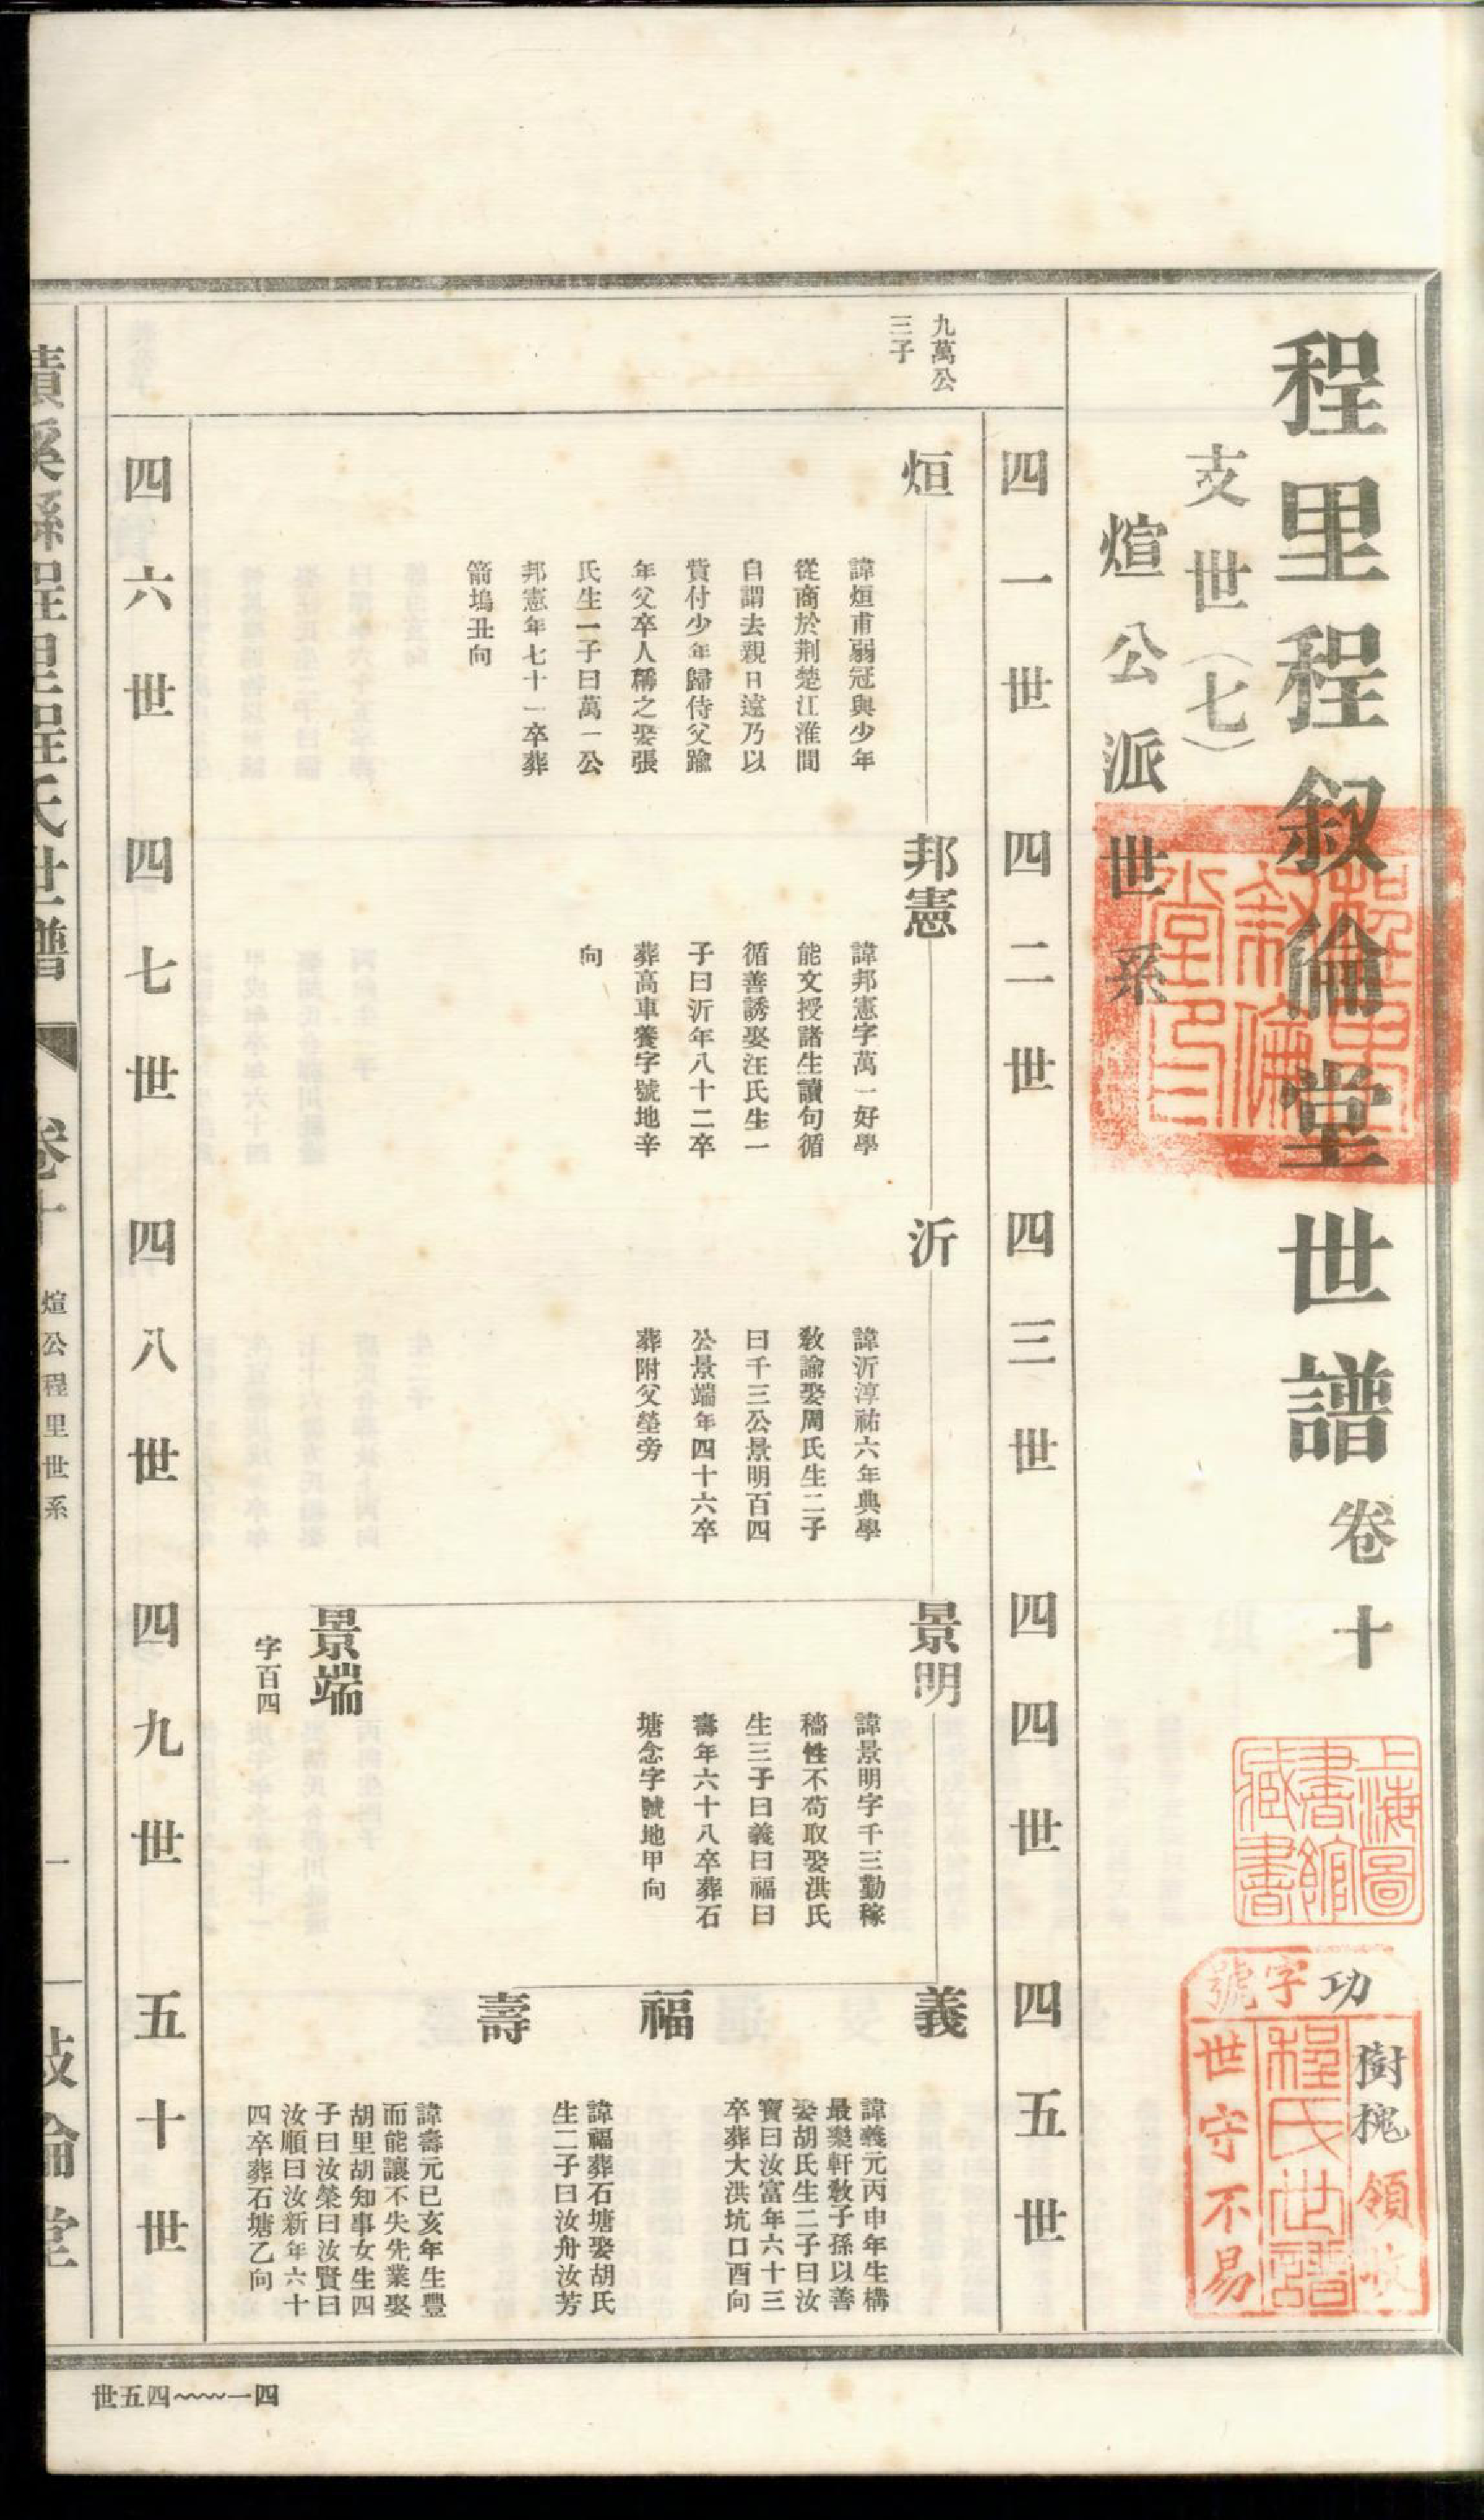 程里程叙倫堂世譜卷十
支世（七）
煊公派世系
程里叙倫堂印
上海圖書館藏書
功字號
樹槐領收
程氏世譜
世守不易
四一世　四二世　四三世　四四世　四五世
九萬公
三子
烜
諱烜甫弱冠與少年
從商於荆楚江淮間
自謂去親日遠乃以
貲付少年歸侍父踰
年父卒人稱之娶張
氏生一子曰萬一公
邦憲年七十一卒葬
箭塢丑向
邦憲
諱邦憲字萬一好學
能文授諸生讀句循
循善誘娶汪氏生一
子曰沂年八十二卒
葬高車養字號地辛
向
沂
諱沂淳祐六年典學
敎諭娶周氏生二子
曰千三公景明百四
公景端年四十六卒
葬附父塋旁
景明
諱景明字千三勤稼
穡性不苟取娶洪氏
生三子曰義曰福曰
壽年六十八卒葬石
塘念字號地甲向
景端
字百四
義
諱義元丙申年生構
最樂軒敎子孫以善
娶胡氏生二子曰汝
寶曰汝富年六十三
卒葬大洪坑口酉向
福
諱福葬石塘娶胡氏
生二子曰汝舟汝芳
壽
諱壽元已亥年生豐
而能讓不失先業娶
胡里胡知事女生四
子曰汝榮曰汝賢曰
汝順曰汝新年六十
四卒葬石塘乙向
四六世　四七世　四八世　四九世　五十世
績溪縣程里程氏世譜　卷十　煊公程里世系　一　敍倫堂
世五四~~~一四